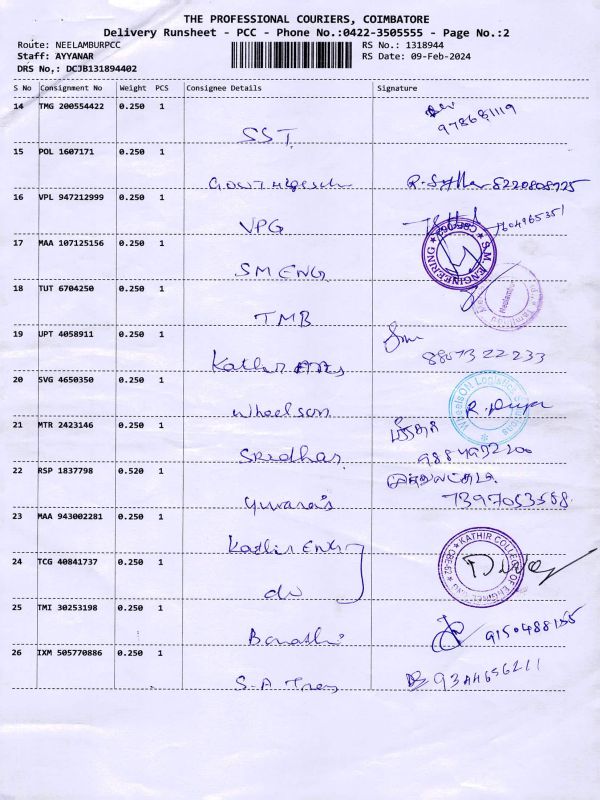 THE PROFESSIONAL COURIERS, COIMBATORE
Delivery Runsheet - PCC - Phone No.:0422-3505555 - Page No.:2
Route: NEELAMBURPCC RS No.: 1318944
Staff: AYYANAR RS Date: 09-Feb-2024
DRS No,: DCJB131894402
S No Consignment No Weight PCS Consignee Details Signature
14 TMG 200554422 0.250 1
SST
15 POL 1607171 0.250 1
8220808925
16 VPL 947212999 0.250 1
VPG
17 MAA 107125156 0.250 1
S.M.ENGINEERING
SM ENG
18 TUT 6704250 0.250 1
Neelambur
TMB
19 UPT 4058911 0.250 1
8807322233
Kathir
20 SVG 4650350 0.250 1
WheelsON Logistics Solutions
Wheelson R. Priya
21 MTR 2423146 0.250 1
Sridhar
22 RSP 1837798 0.520 1
Yuvaraj 7397053568
23 MAA 943002281 0.250 1
Kathir Eng
24 TCG 40841737 0.250 1
KATHIR COLLEGE OF ENGINEERING
do
25 TMI 30253198 0.250 1
9150488155
26 IXM 505770886 0.250 1
9344656211
S.A